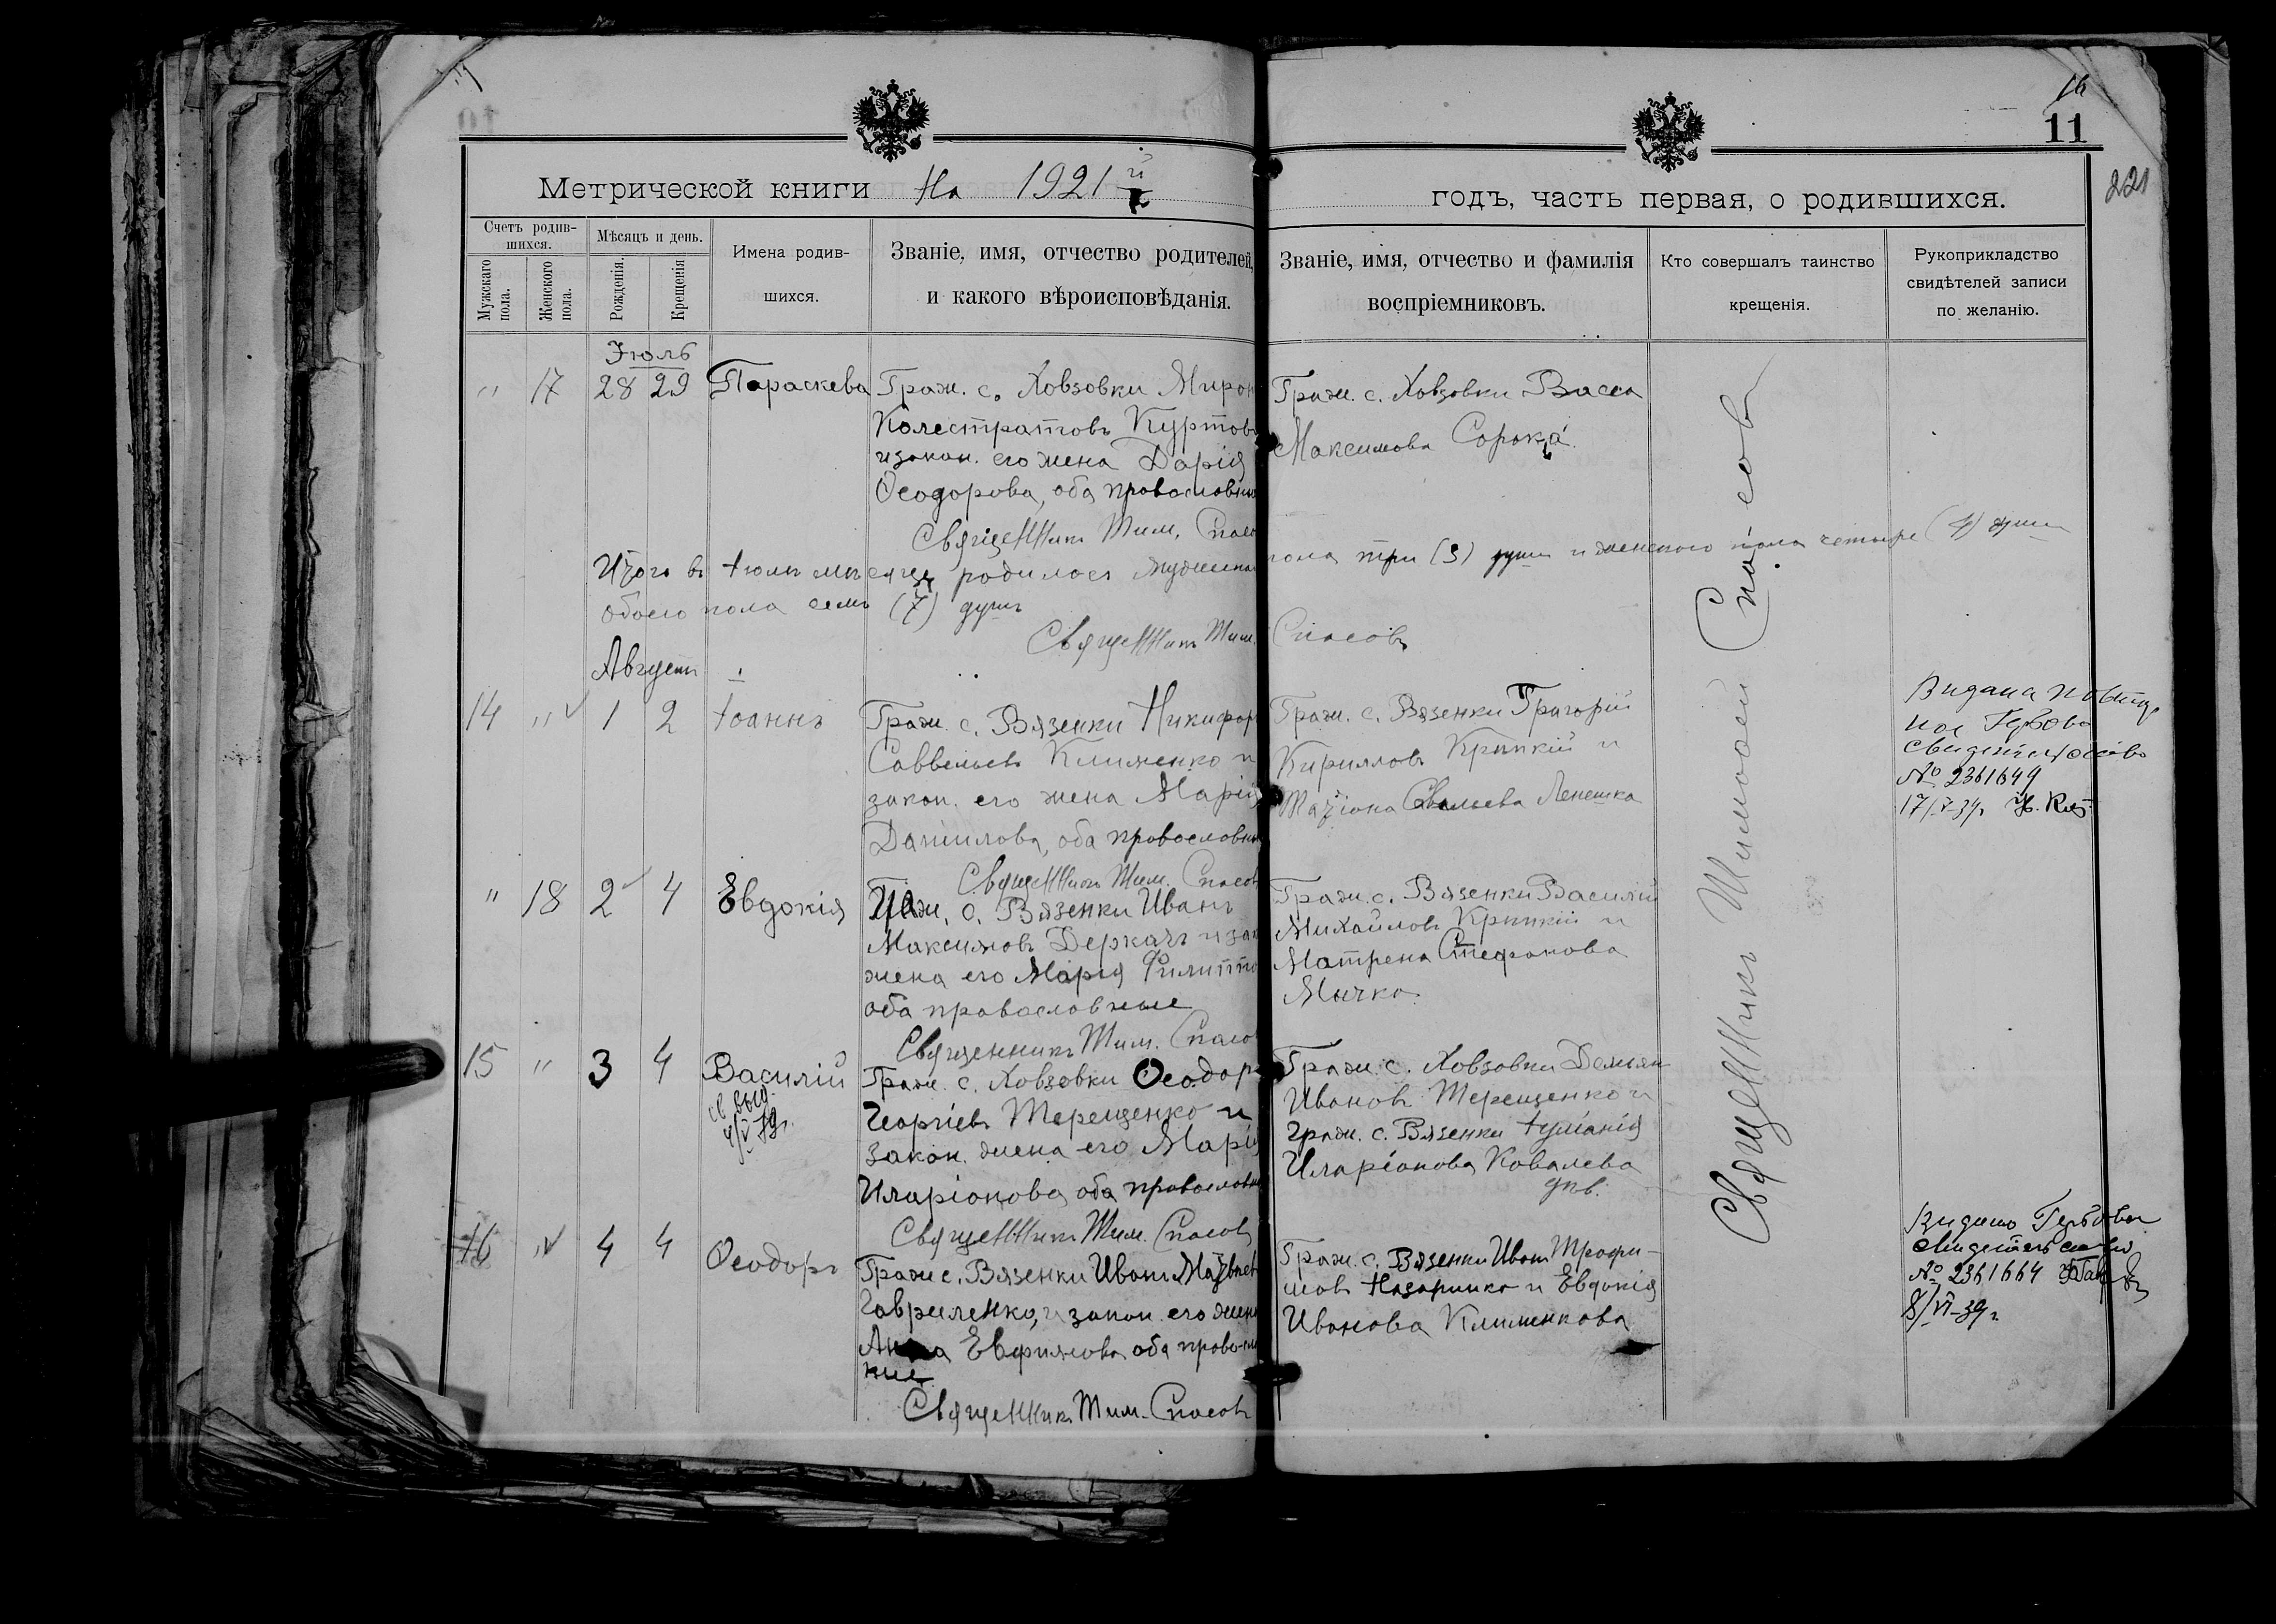 16
11
221
Метрической книги На 1921 й годъ, часть первая, о родившихся.
Счетъ родив-
шихся.
Мужскаго пола.
Женского пола.
Мѣсяцъ и день.
Рожденія.
Крещенія
Имена родив-
шихся.
Званіе, имя, отчество родителей,
и какого вѣроисповѣданія.
Званіе, имя, отчество и фамилія
воспріемниковъ.
Кто совершалъ таинство
крещенія.
Рукоприкладство
свидѣтелей записи
по желанію.
Іюль
" 17 28 29 Параскева
Граж. с. Ховзовки Мирон
Калестратовъ Куртов
и закон. его жена Дарія
Ѳеодорова, оба православны
Священникъ Тим. Спасо
Граж. с. Ховзовки Васса
Максимова Сорока
Итого въ Іюлѣ мѣсяцѣ родилось мужеска пола три (3) души и женского пола четыре (4) души
обоего пола семь (7) душъ
Священникъ Тим. Спасовъ
Августъ
14 " 1 2 Іоаннъ
Граж. с. Вязенки Никифор
Саввельевъ Клименко и
закон. его жена Марія
Даниилова, оба православны
Священникъ Тим. Спасов
Граж. с. Вязенки Григорій
Кирилловъ Крипкій и
Савельева
№ 2361649
" 18 2 4 Евдокія
Граж. с. Вязенки Иванъ
Максимовъ Деркачъ и зак
жена его Марія Филиппо
оба православные
Священникъ Тим. Спасо
Граж. с. Вязенки Василій
Михайловъ Крипкій и
Матрена Стефанова
Мычка
15 " 3 4 Василій
Граж. с. Ховзовки Ѳеодоръ
Георгіевъ Терещенко и
закон. жена его Марія
Иларіонова, оба православны
Священникъ Тим. Спасовъ
Граж. с. Ховзовки Демьян
Ивановъ Терещенко и
граж. с. Вязенки Іуліанія
Иларіонова Ковалева
16 " 4 4 Ѳеодоръ
Граж с. Вязенки Иванъ Матвѣев
Гавриленко, и закон. его жена
Анна Евфимова, оба право-
ные
Священникъ Тим. Спасовъ
Граж. с. Вязенки Иванъ Трофи-
мовъ Назаренко и Евдокія
Иванова Клименкова
Священникъ Тимофей Спасов
№ 2361664
8/VI-39г